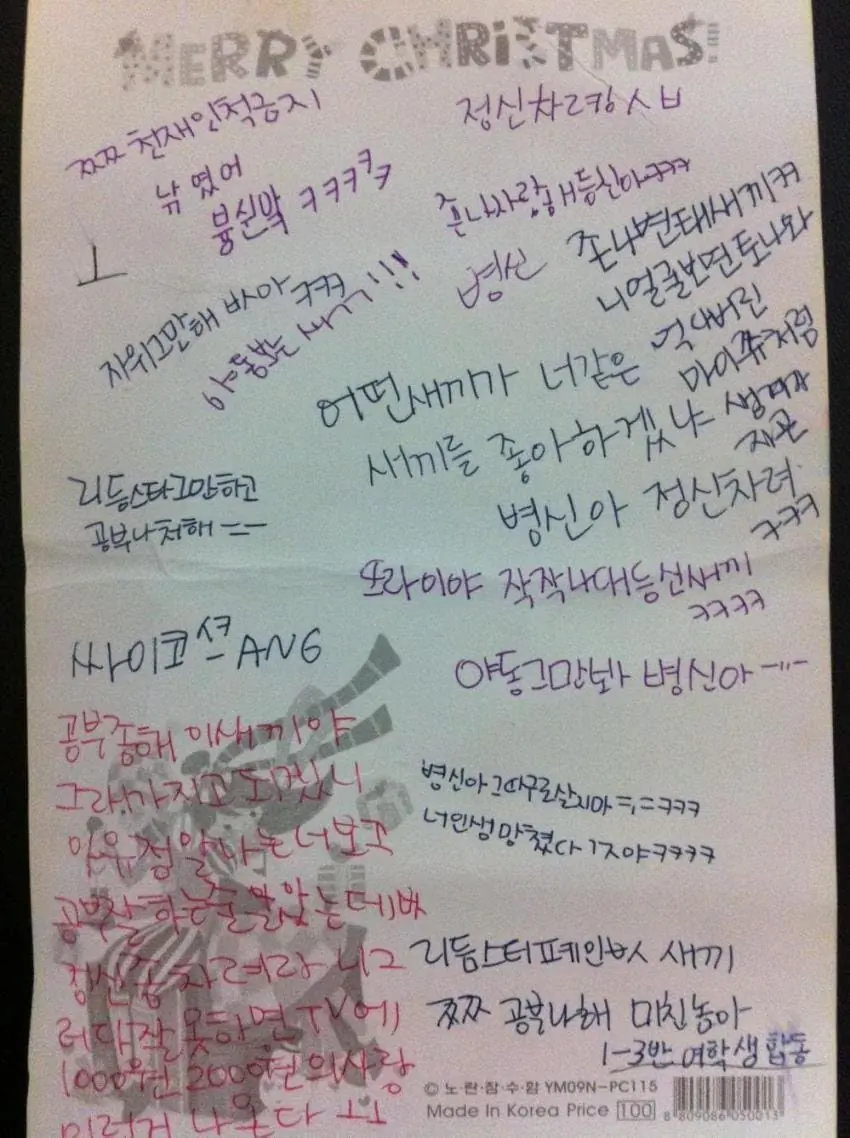 MERRY CHRISTMAS!
쯔쯔 천재인척금지
정신차려캉ㅅㅂ
낚였어
븅쉰박 ㅋㅋㅋㅋㅋ
존나사랑해등신아ㅋㅋㅋ
병신
존나변태새끼ㅋㅋ
니얼굴보면토나와
자위그만해 바아 ㅋㅋㅋ
야동보는 새끼!!!
어떤새끼가 너같은
새끼를 좋아하겠냐
마이쮸처럼
생겨가
병신아 정신차려
ㅋㅋㅋ
리듬스타그만하고
공부나처해 ㅡㅡ
또라이야 작작나대등신새끼
ㅋㅋㅋㅋ
싸이코ANG
야동그만봐 병신아 ㅡ..ㅡ
공부좀해 이새끼야
그래가지고 되겠니
아유 정말 나는 너보고
공부잘하는줄 알았는데
정신좀 차려라 니그
러다잘못하면TV에
1000원 2000원의사랑
이런거 나온다 ㅜㅜ
병신아 그따구로살지마 ㅋㅋㅋ
너인생망쳤다 ㅋㅋㅋㅋ
리듬스터페인 새끼
쯔쯔 공부나해 미친놈아
1-3반 여학생 합동
© 노·란·잠·수·함 YM09N-PC115
Made In Korea Price 100
8 809086 050013